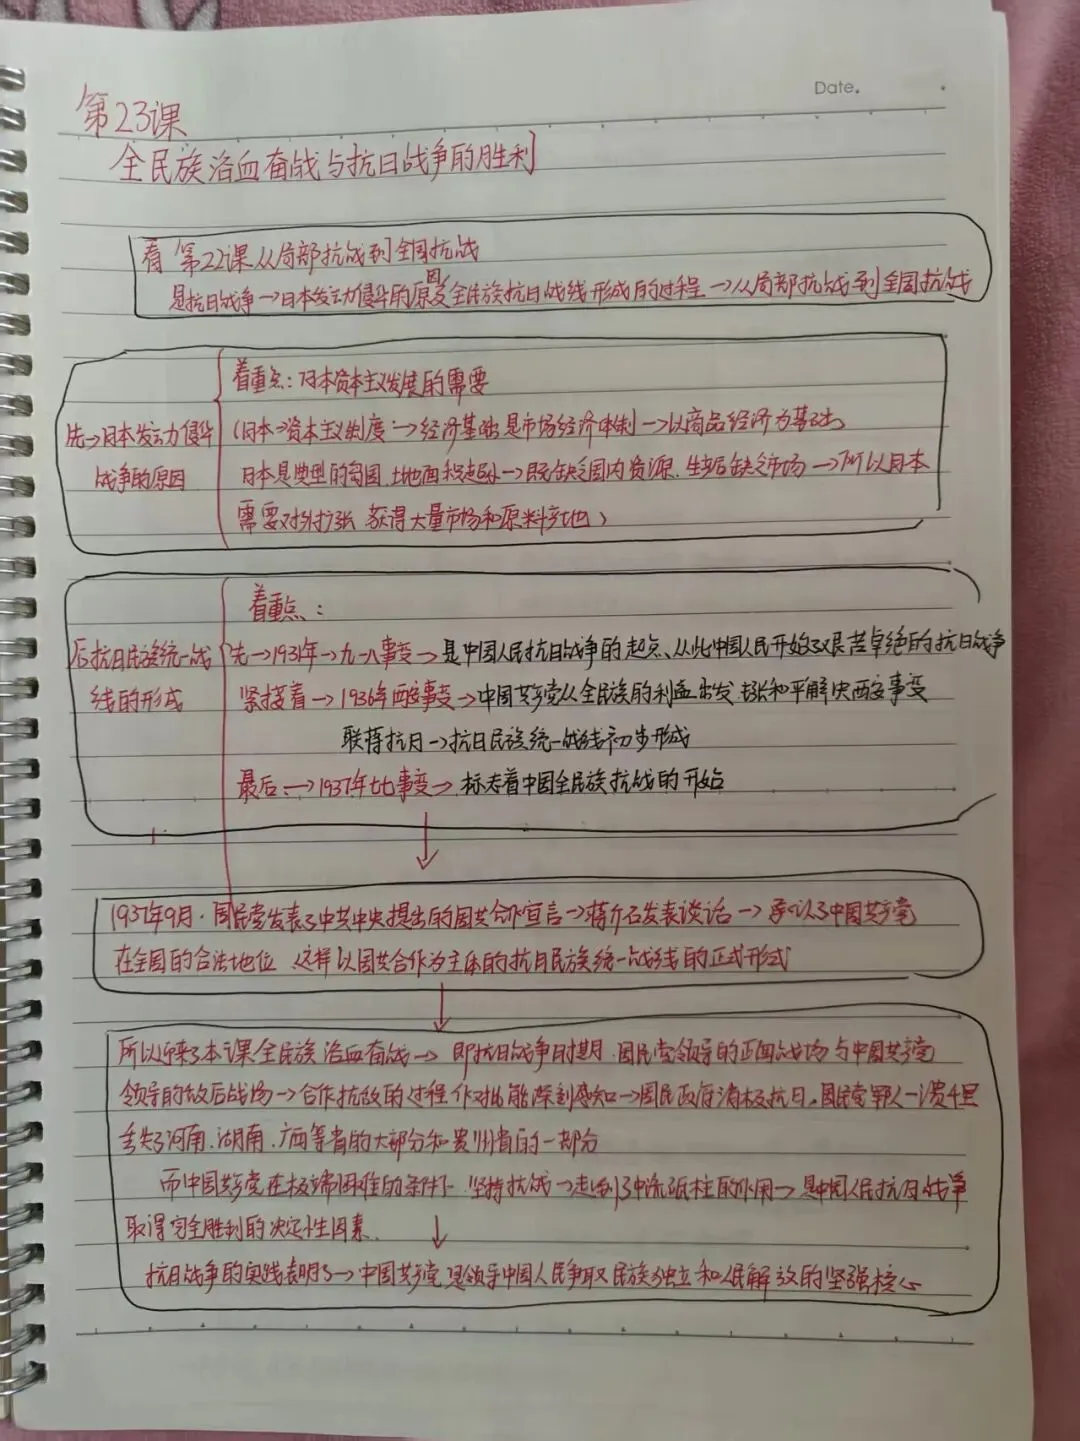 Date.
第23课
全民族浴血奋战与抗日战争的胜利
看 第22课从局部抗战到全国抗战
是抗日战争→日本发动侵华的原因及全民族抗日战线形成的过程→从局部抗战到全国抗战
先→日本发动侵华
战争的原因
着重点：日本资本主义发展的需要
(日本→资本主义制度→经济基础是市场经济体制→以商品经济为基础
日本是典型的岛国 土地面积超小→既缺乏国内资源、生产后缺乏市场→所以日本
需要对外扩张 获得大量市场和原料产地)
后抗日民族统一战
线的形成
着重点：
先→1931年→九一八事变→是中国人民抗日战争的起点、从此中国人民开始了艰苦卓绝的抗日战争
紧接着→1936年西安事变→中国共产党从全民族的利益出发 主张和平解决西安事变
联蒋抗日→抗日民族统一战线初步形成
最后→1937年七七事变→标志着中国全民族抗战的开始
1937年9月.国民党发表了中共中央提出的国共合作宣言→蒋介石发表谈话→承认了中国共产党
在全国的合法地位 这样以国共合作为主体的抗日民族统一战线的正式形成
所以近来了本课全民族浴血奋战→即抗日战争时期 国民党领导的正面战场与中国共产党
领导的敌后战场→合作抗敌的过程 作对比能深刻感知→国民政府消极抗日。国民党军人一溃千里
丢失了河南、湖南、广西等省的大部分和贵州省的一部分
而中国共产党在极端困难的条件下 坚持抗战→起到了中流砥柱的作用→是中国人民抗日战争
取得完全胜利的决定性因素.
抗日战争的实践表明了→中国共产党是领导中国人民争取民族独立和人民解放的坚强核心